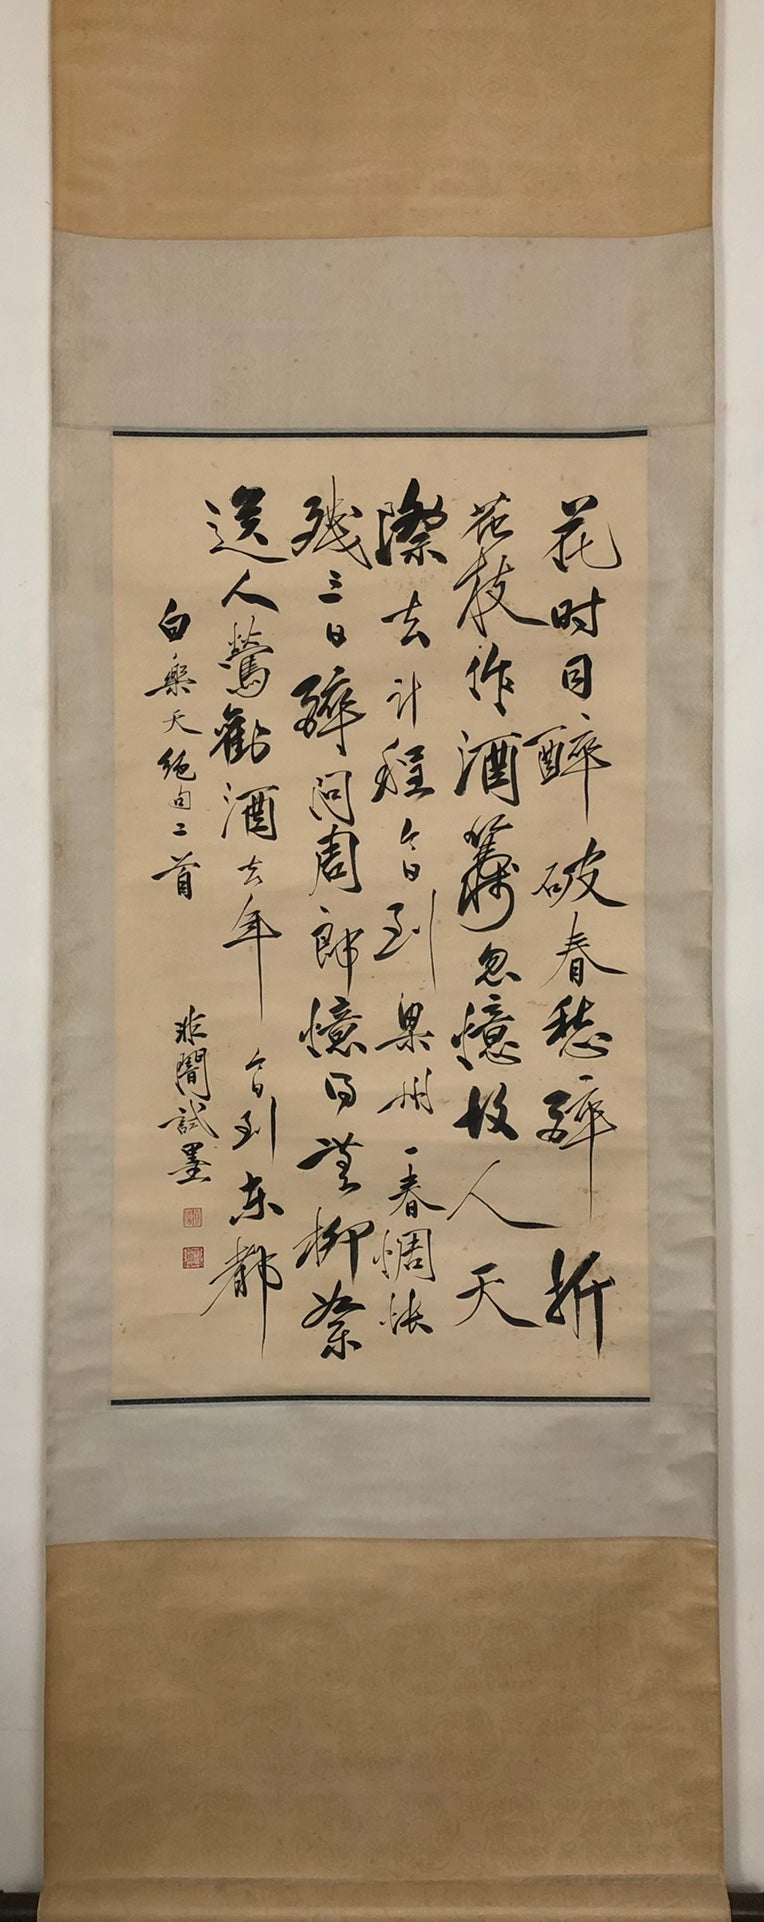 花时同醉破春愁醉折
花枝作酒筹忽憶故人天
際去计程今日到梁州一春惆悵
残三日醉问周郎憶得無柳絮
送人鶯勸酒去年今日到东都
白樂天絶句二首
非闇試墨